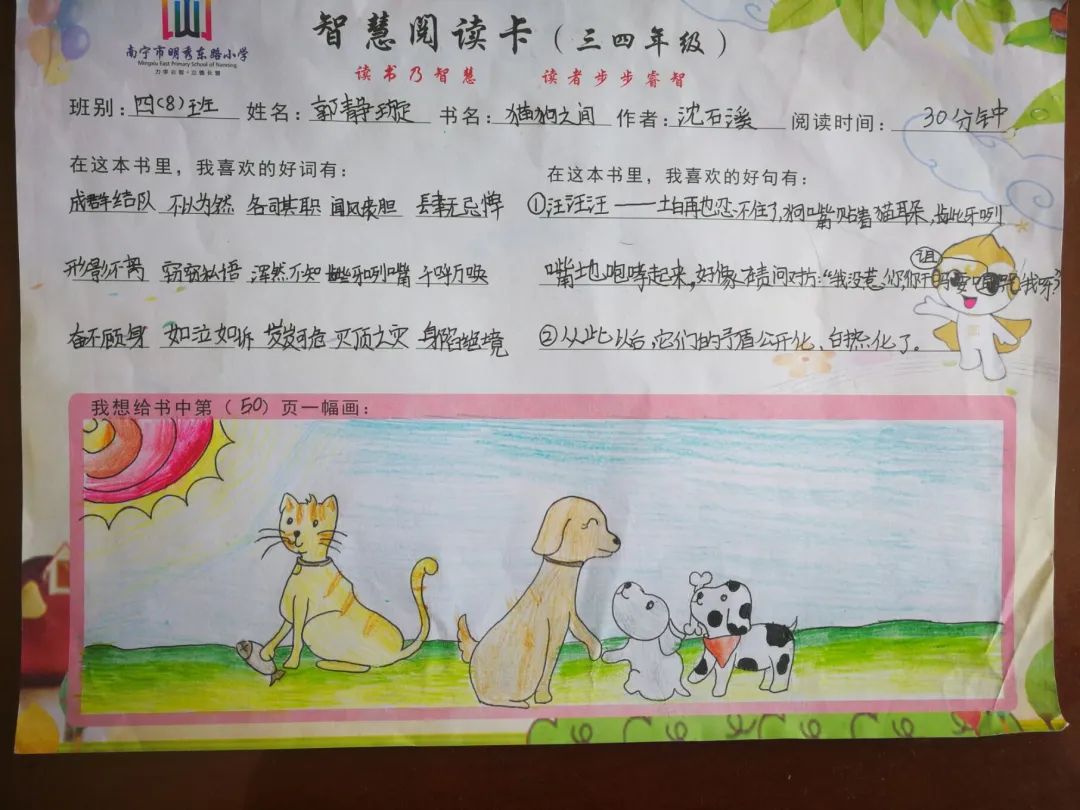 智慧阅读卡（三四年级）
南宁市明秀东路小学
Mingxiu East Primary School of Nanning
读书乃智慧 读者步步睿智
班别：四(8)班 姓名：郭静璇 书名：猫狗之间 作者：沈石溪 阅读时间：30分钟
在这本书里，我喜欢的好词有：
成群结队 不以为然 各司其职 闻风丧胆 肆无忌惮
形影不离 窃窃私语 浑然不知 呲牙咧嘴 千呼万唤
奋不顾身 如泣如诉 岌岌可危 灭顶之灾 身陷绝境
在这本书里，我喜欢的好句有：
①汪汪汪——土白再也忍不住了,狗嘴贴着猫耳朵,龇牙咧
嘴地咆哮起来,好像在责问对方:“我没惹你,你干吗要诅咒我呀?
②从此以后,它们的矛盾公开化、白热化了。
我想给书中第（50）页一幅画：